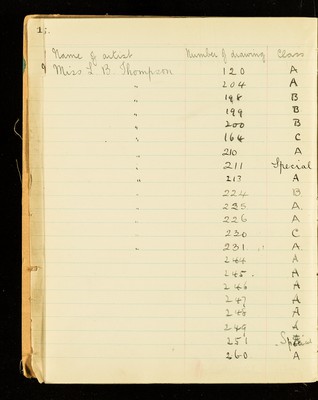 1
Name of artist Number of drawing Class
Miss L. B. Thompson 120 A
" 204 A
" 198 B
" 199 B
" 200 B
" 164 C
" 210 A
" 211 Special
" 213 A
" 224 B
" 225 A
" 226 A
" 230 C
" 231 A
244 A
245 A
246 A
247 A
248 A
249 A
251 Special
260 A